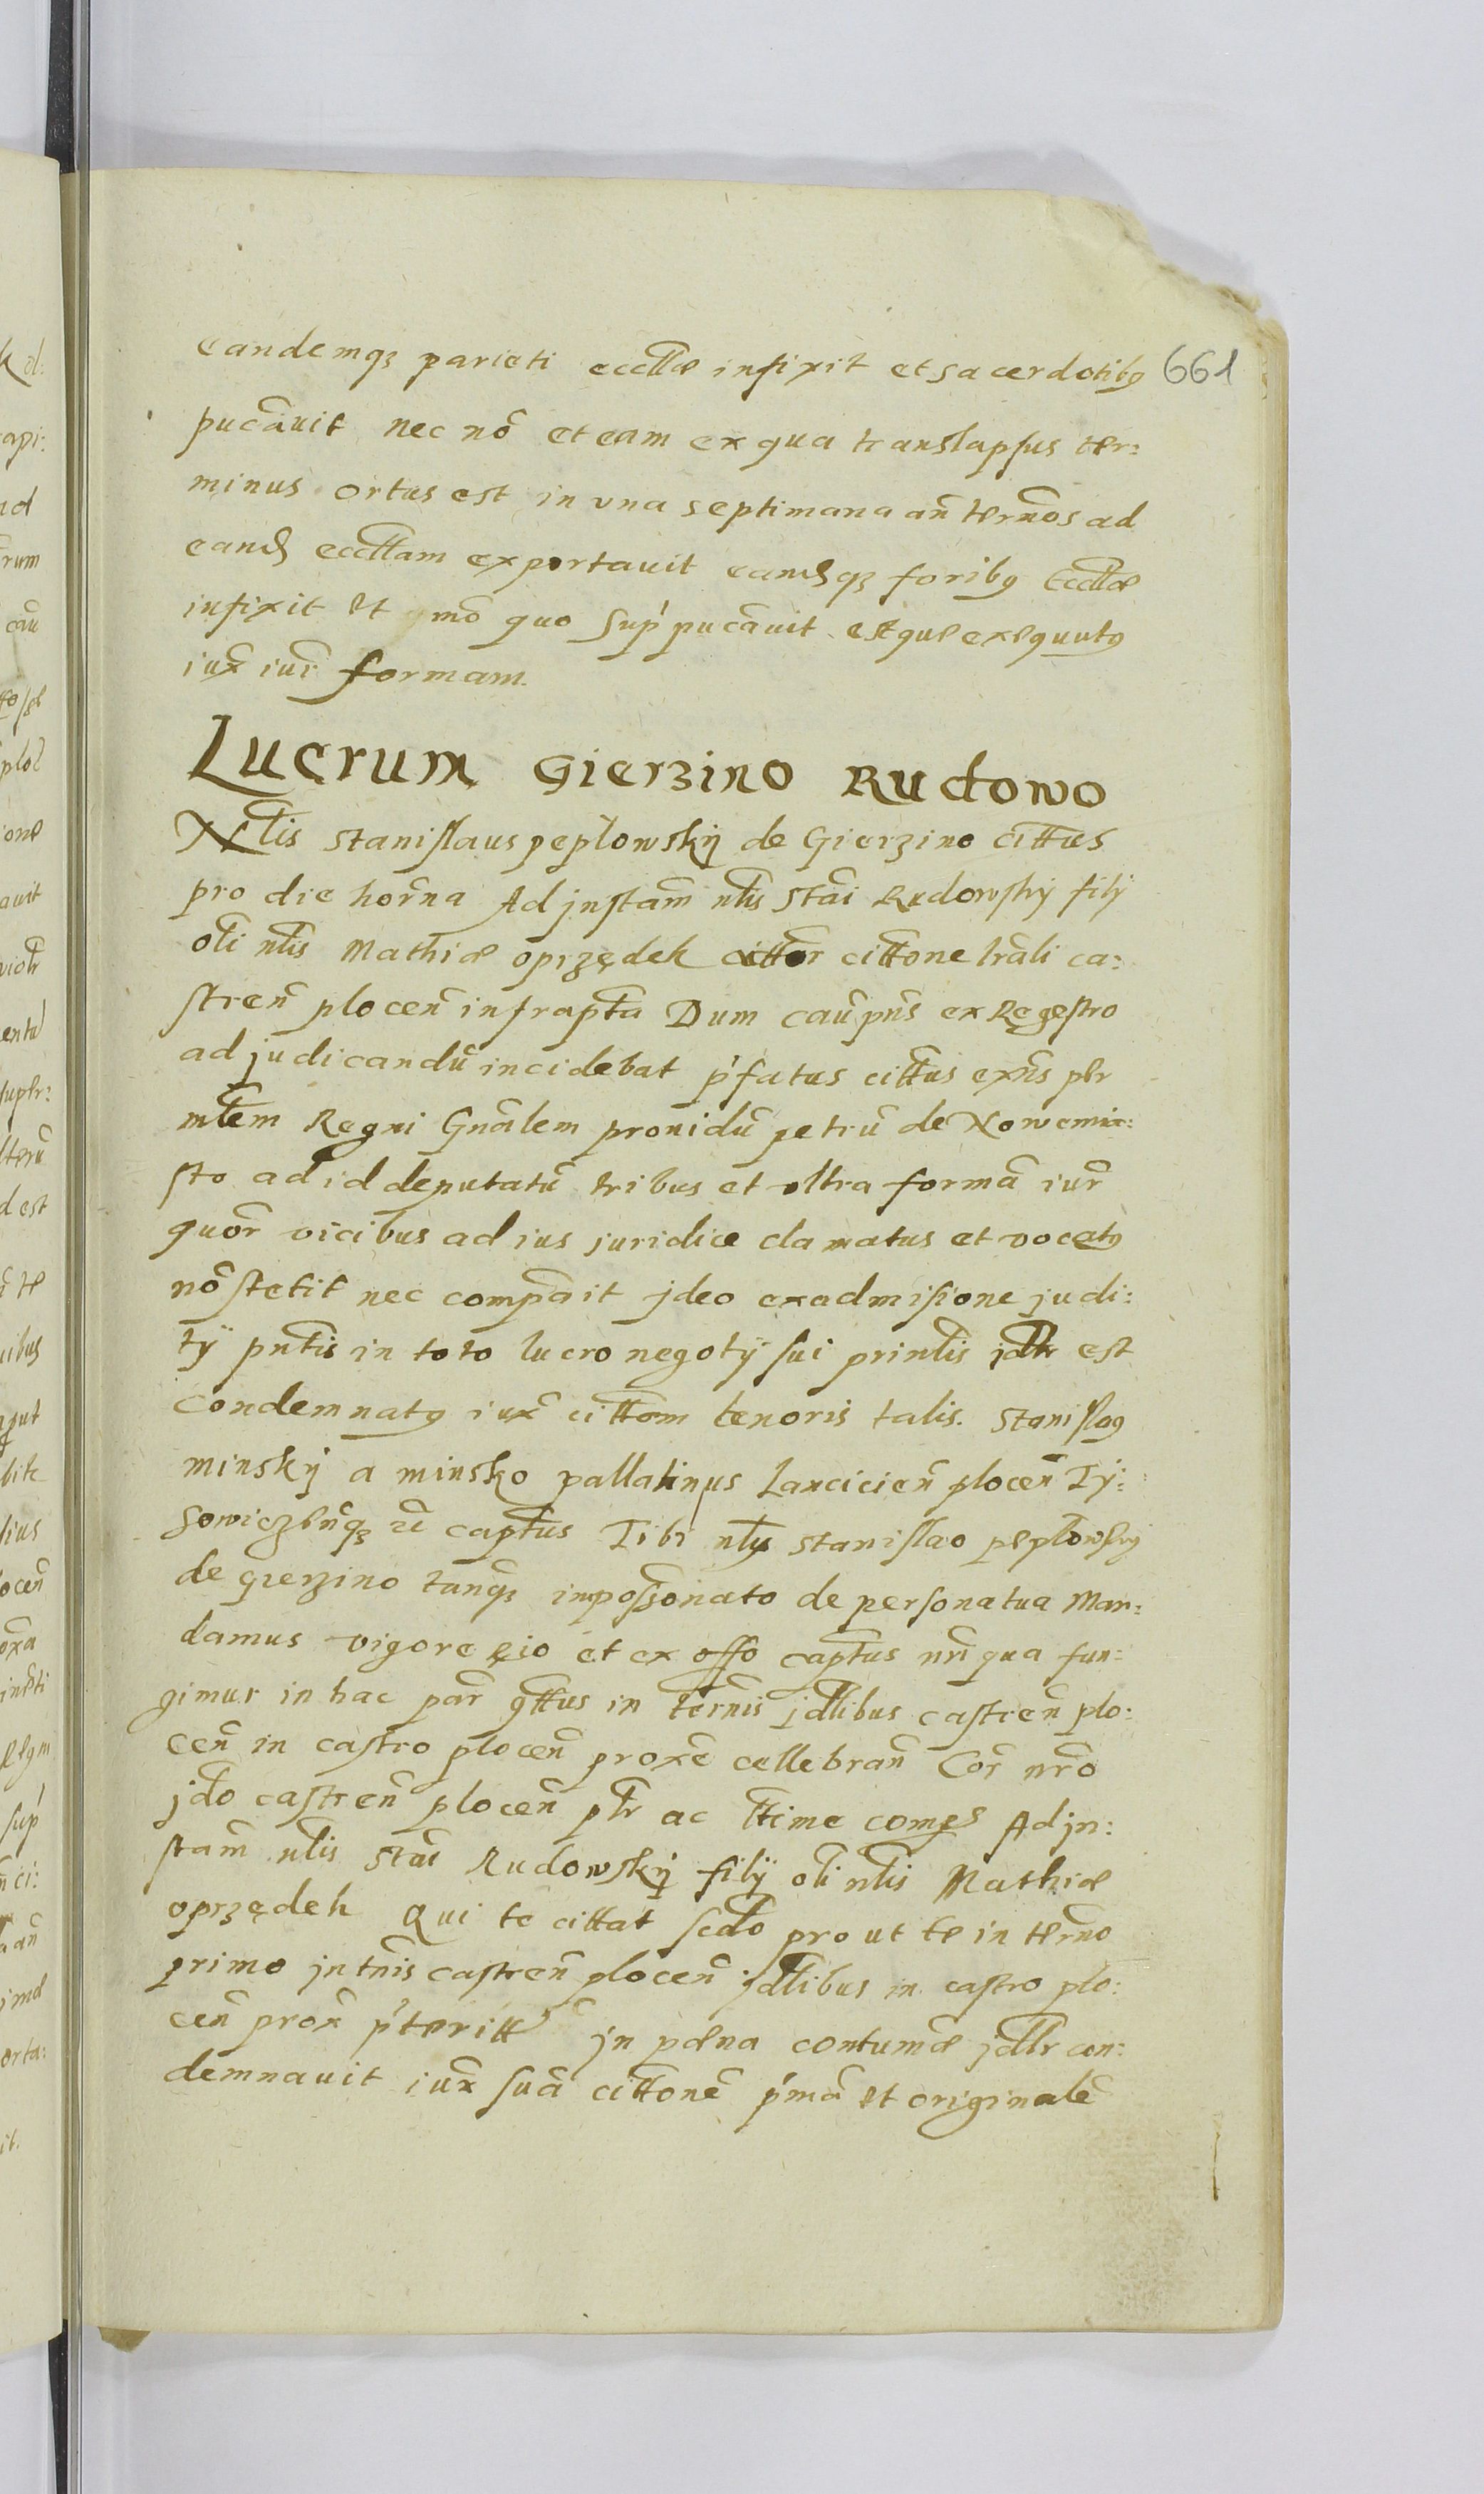 eandemqʒ parieti ecctlæ infixit et sacerdotibꝫ 661
pucāuit nec nō et eam ex qua translapsus ter:
minus ortus est in vna septimana an̄ tern̄os ad
eand ecctlam exportauit eandqʒ foribꝫ Ecctlæ
infixit Et mō quo sup pucāuit estque exequutꝫ
iux̄ iur̄ formam.
Lucrum Gierzino Rudowo
Nlis Stanislaus peplowskÿ de Gierzino cittus
pro die horn̄a Ad jnstam̄ nlis Stāi Rudowskÿ filÿ
oli nlis Mathiæ oprzędek citt̄one lrāli ca:
stren̄ plocen̄ infrapt̄a Dum cau̅ pn̄s ex Regestro
ad judicandū incidebat p'fatus cittus exn̄s per
mlem Regni Gnālem prouidū petrū de Nowemia:
sto ad id deputatū tribus et vltra formā iur̄
quor̄ vicibus ad ius juridice clamatus et vocatꝫ
nō stetit nec compāit jdeo ex admisione judi:
tÿ pntis in toto lucro negotÿ sui prinlis jdtr est
condemnatꝫ iux̄ cittom̄ tenoris talis. Stanislaꝫ
minskÿ a minsko pallatinus Lancicien̄ plocen̄ Tÿ:
sowiczen̄qʒ et̄ capt̄us Tibi nli Stanislao peplowskÿ
de gierzino tanqʒ inpossonato de persona tua Man:
damus vigore eio et ex offo capt̄us nr̄i qua fun:
gimur in hac par̄ qttus in tern̄is jdlibus castren̄ plo:
cen̄ in castro plocen̄ proxe̅ cellebran̄ Cor̄ nr̄o
jdo castren̄ plocen̄ plr ac ttime compes Ad jn:
stam̄ nlis Stāi Rudowskÿ filÿ oli nlis Mathiæ
oprzędek Qui te cittat scdo prout te in tern̄o
primo jn tn̄is castren̄ plocen̄ jdlibus in castro plo:
cen̄ prox̄ p'teritt jn pœna contumæ jdlr con:
demnauit iux̄ suā cittonē p'mā et originalē